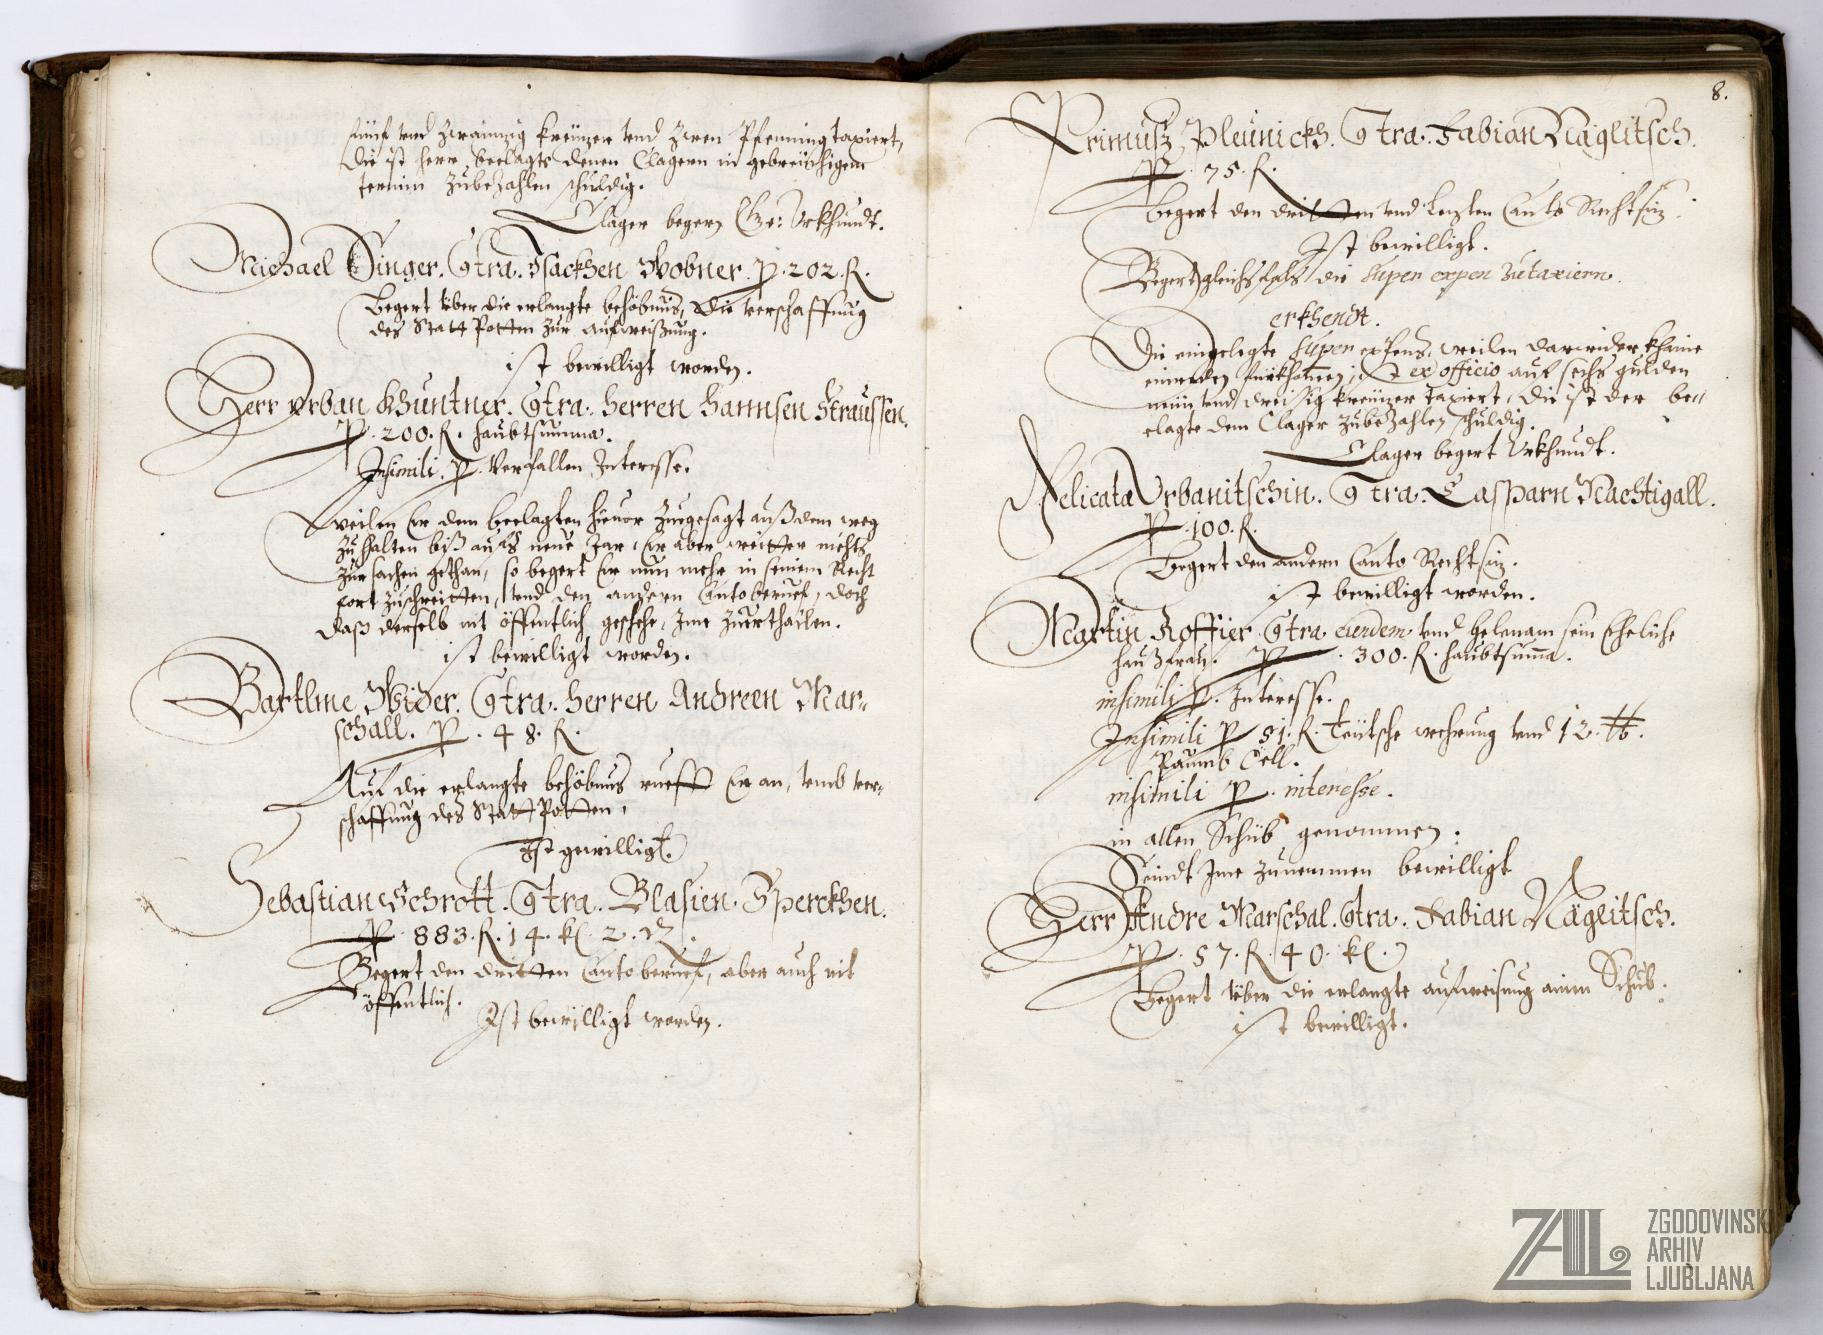 fünf vnd zwainzig kreüzer vnd zwen Pfenning taxiert,
die ist herr beclagte denen Clagern in gebreüchigem
termin zubezahlen schuldig.
Clager begern Vrkhundt.
Michael Singer. Contra. Isackhen Wobner. p. 202. R.
Begert über die erlangte behöbnus, die verschaffung
des Statt Potten zur aufweisung.
ist bewilligt worden.
Herr Vrban Khuntner. Contra. Herren Hannsen Straussen.
P. 200. R. haubtsumma.
Insimili. P. Verfallen Interesse.
weilen Er dem beclagten hieuor zuegesagt auß dem weg
zuhalten biß aufs neue Jar, Er aber weitter nichts
zur sachen gethan, so begert Er nun mehr in seinem Recht
fort zuschreitten, vnd den andern Canto beruef, doch
daß derselb nit öffentlich geschehe, Ime zuerthailen.
ist bewilligt worden.
Bartlme Wider. Contra. Herren Andreen Mar-
schall. P. 48. R.
Auf die erlangte behöbnus ruefft Er an, vmb ver-
schaffung des Statt Potten,
Ist gewilligt.
Sebastian Schrott. Contra. Blasien. Sperckhen.
P. 883. R. 14. kr. 2. d.
Begert den dritten Canto beruef, aber auch nit
öffentlich.
Ist bewilligt worden.
8.
Primusz Pleunickh. Contra. Fabian Näglitsch.
P. 75. R.
Begert den dritten vnd lezten Canto Rechtsiz
Ist bewilligt.
Begert gleichsfals die super expen zutaxiern.
erkhendt.
Die eingelegte super expens, weilen darwider khaine
einreden fürkhomen, ist ex officio auf sechs gulden
neun vnd dreissig kreüzer taxiert, die ist der be-
clagte dem Clager zubezahlen schuldig.
Clager begert Vrkhundt.
Felicata Vrbanitschin. Contra. Casparn Nachtigall.
P. 100. R.
Begert den andern Canto Rechtsiz.
ist bewilligt worden.
Martin Roffier. Contra eundem vnd Helenam sein Eheliche
haußfrau. P. 300. R. haubtsumma.
insimili P. Interesse.
Insimili P 51. R. Teütsche wehrung vnd 12. lb.
Paumb Oell.
insimili P. interesse.
in allen Schüb genommen.
Seindt Ime zunemmen bewilligt
Herr Andre Marschal. Contra. Fabian Näglitsch.
P. 57. R. 40. kr.
Begert über die erlangte aufweisung ainen Schub.
ist bewilligt.
ZAL ZGODOVINSKI
ARHIV
LJUBLJANA